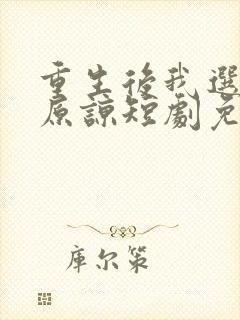 重生後我選
原諒短劇免
庫尔策